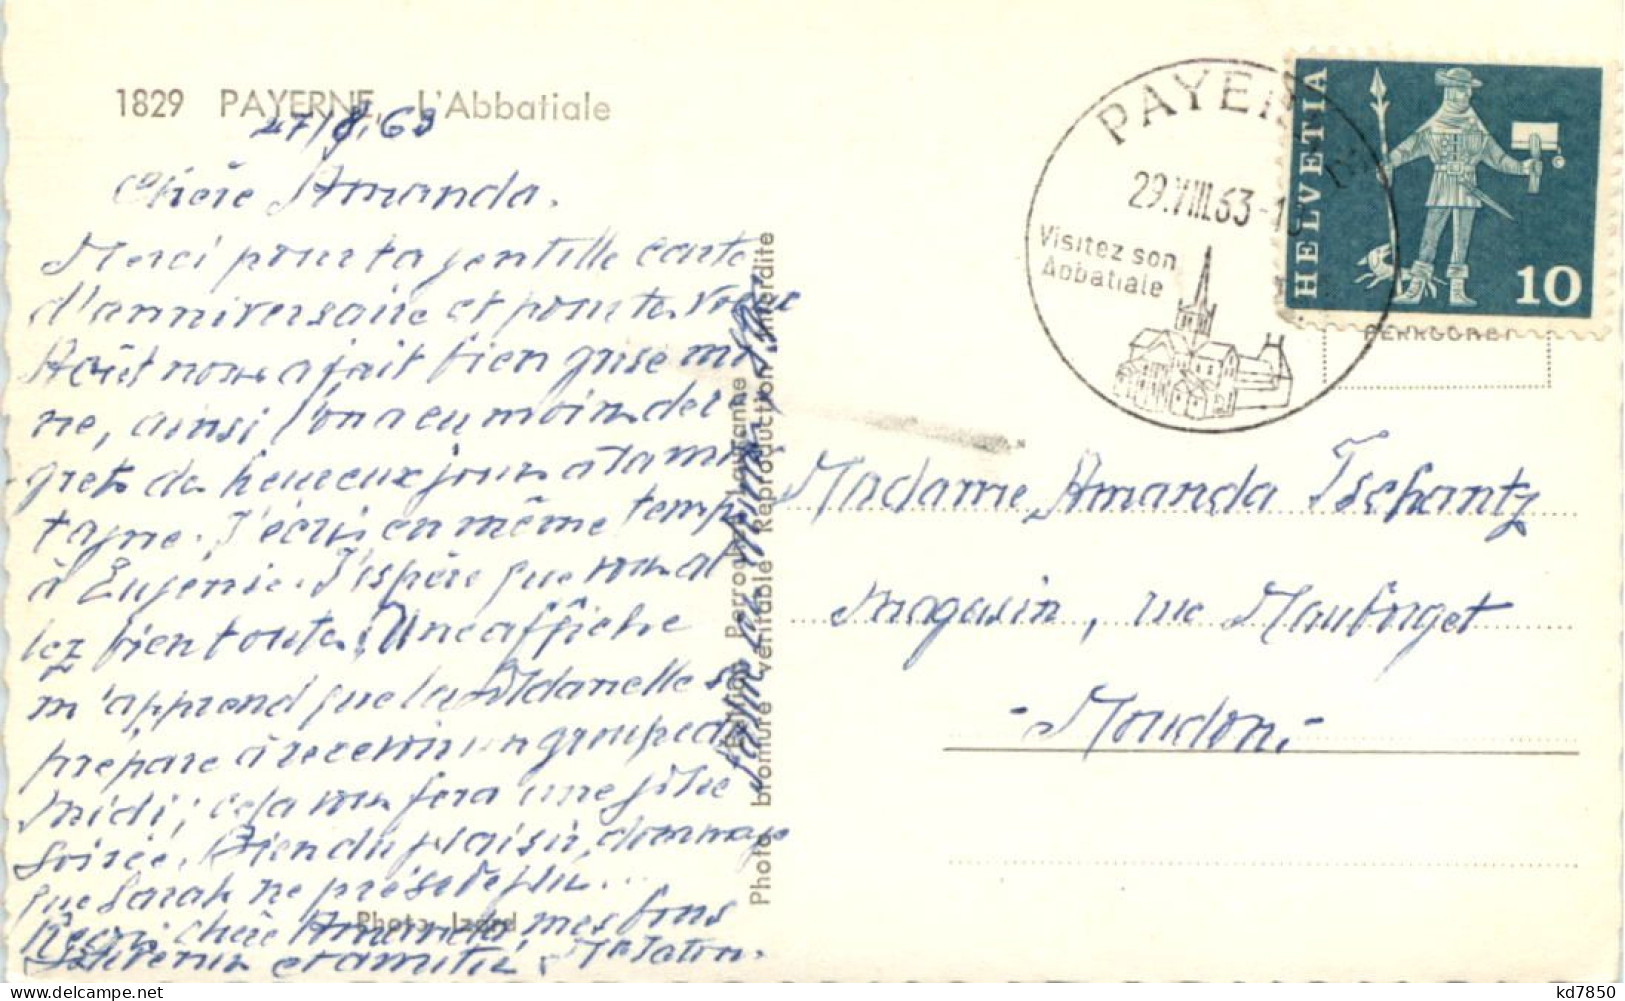 1829 PAYERNE, L'Abbatiale
27/8.63
Chère Amanda.
Merci pour ta gentille carte
d'anniversaire et pour tes vœux
Août nous a fait bien grise mi
ne, ainsi l'on a eu moins de re
grets des heureux jours à la mon
tagne. J'écris en même temps
à Eugénie. J'espère que vous al
lez bien toutes. Une affiche
m'apprend que la Aldanelle se
prépare à recevoir un groupe du
Midi; cela vous fera une jolie
soirée. Bien du plaisir, dommage
que Sarah ne préside plus...
Reçois chère Amanda, mes bons
souvenirs et amitiés.
Photo Izard
Edition Perrochet Lausanne
Photo bromure véritable Reproduction interdite
PAYERNE
29.VIII.63-1
Visitez son
Abbatiale
HELVETIA
10
PERROCHET
Madame Amanda Tschantz
Magasin, rue Mauborget
- Moudon. -
kd7850